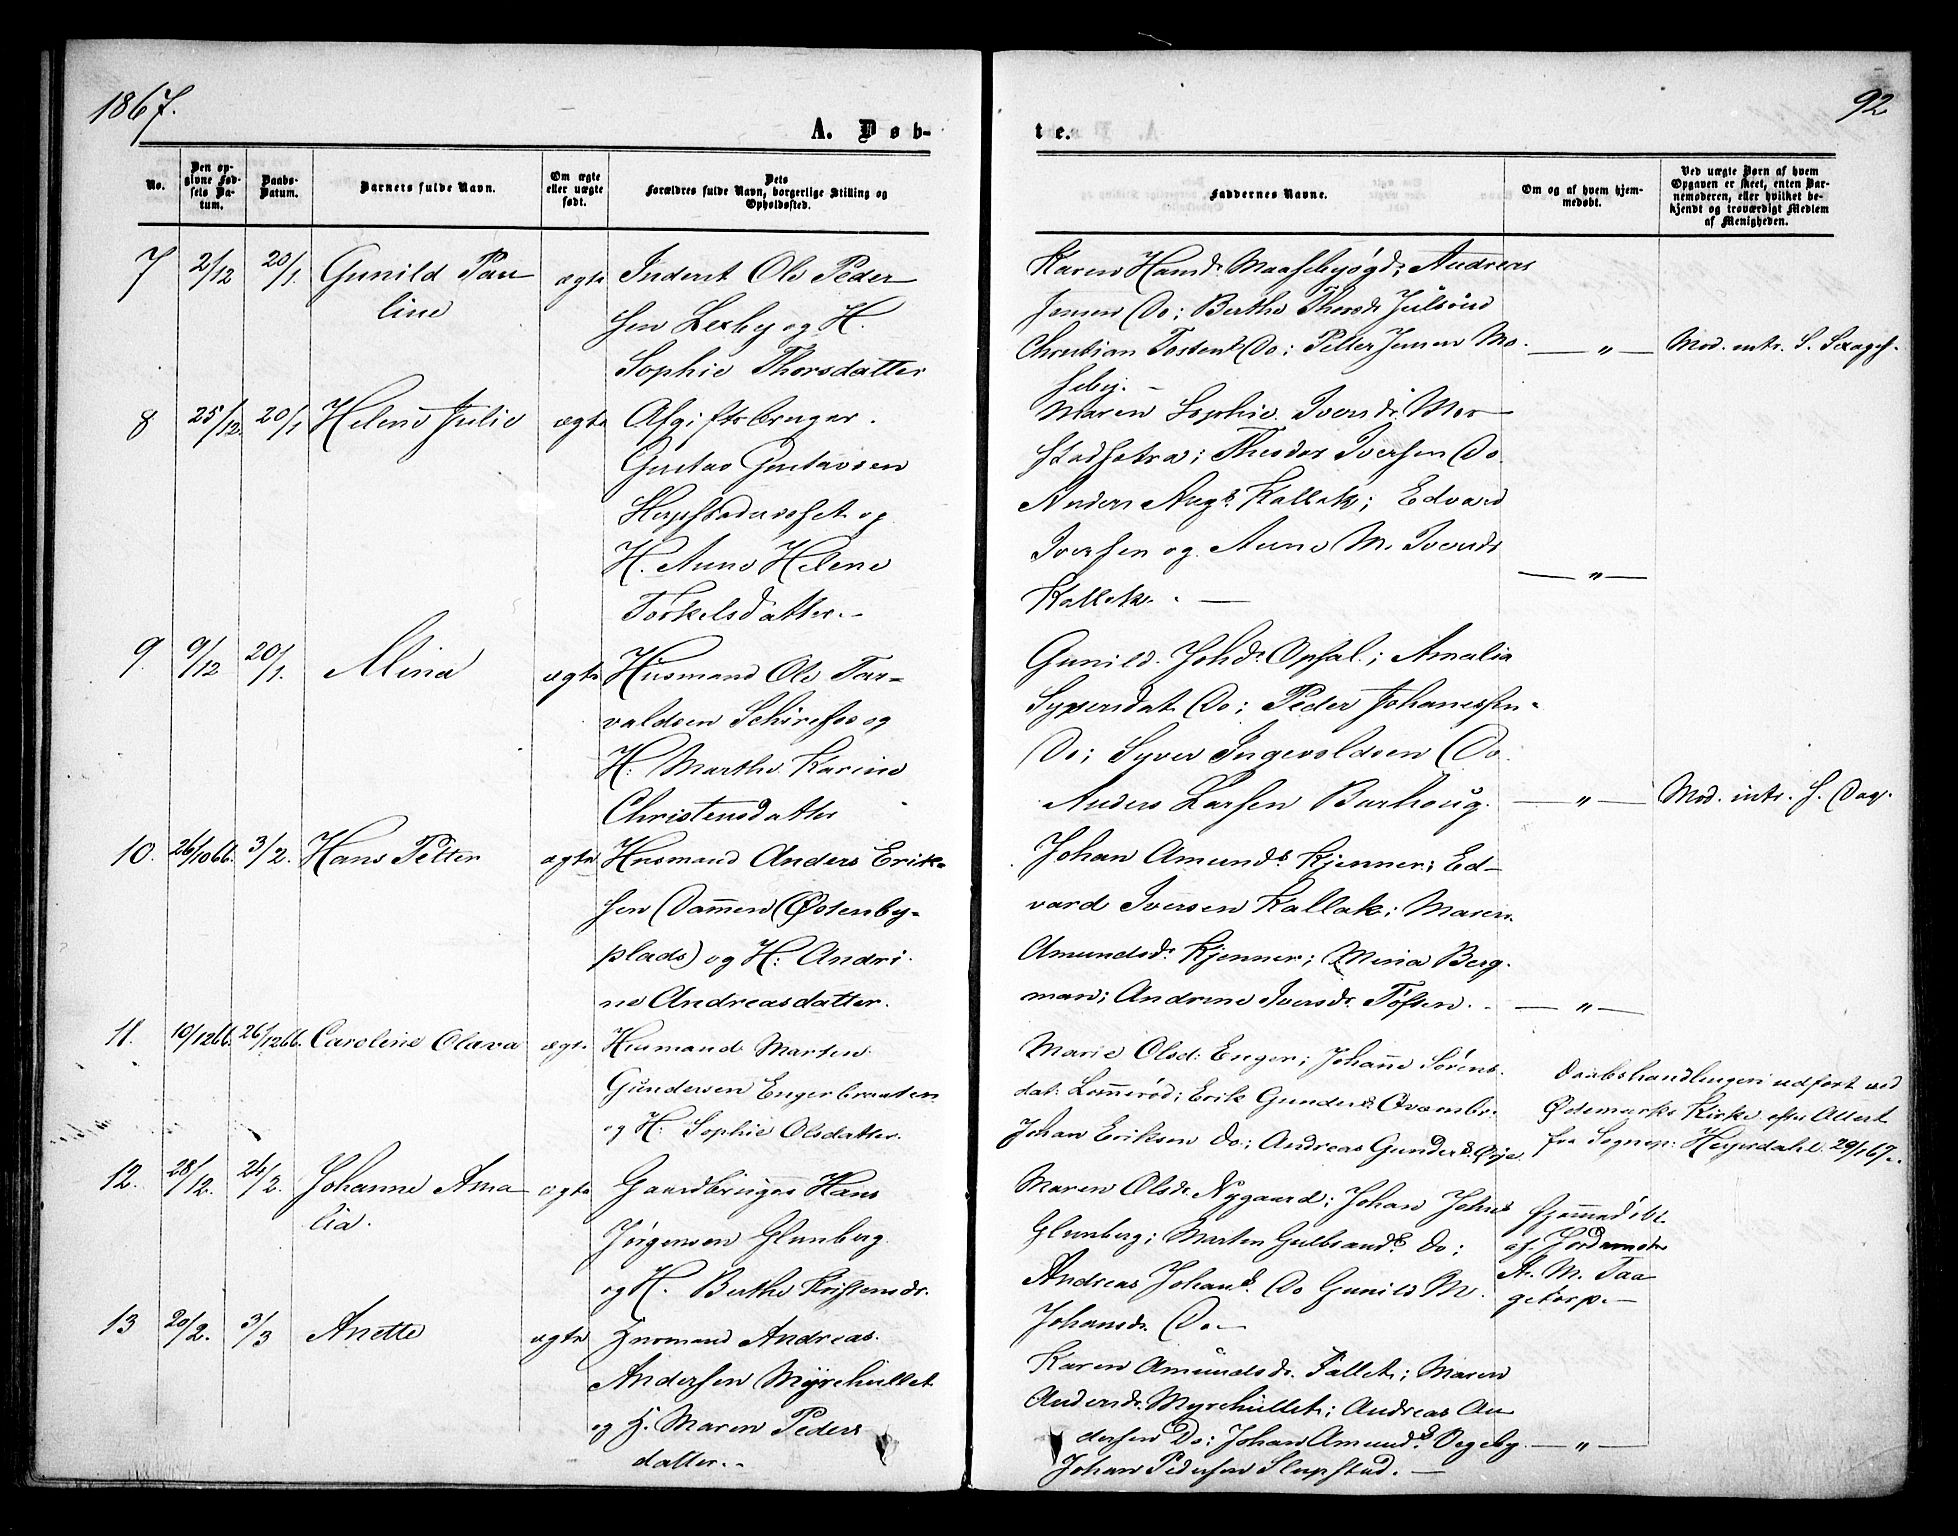 1867.
92
A. Døb-
te.
No.
Den op-
givne Fød-
sels Da-
tum.
Daabs-
Datum.
Barnets fulde Navn.
Om ægte
eller uægte
født.
Dets
Forældres fulde Navn, borgerlige Stilling og
Opholdssted.
Faddernes Navne.
Om og af hvem hjem-
medøbt.
Ved uægte Børn af hvem
Opgaven er skeet, enten Bar-
nemoderen, eller hvilket be-
kjendt og troværdigt Medlem
af Menigheden.
7 2/12 20/1. Gunild Pau
line
ægte
Inderst Ole Peder
sen Lerby og H.
Sophie Thorsdatter
Karen Hansd. Andreas
Jensen Do; Berthe Thorsd.
Christian Do; Petter Jensen Mo-
seby. —
— „ —
Mod. intr. S.
8 25/12. 20/1 Helene Julie
ægte
Afgiftsbruger.
Gustav Gustavsen
og
H. Anne Helene
Torkelsdatter. -
Maren Sophie Iversd. Mor
stadsetra; Theodor Iversen Do.
Anders Aug. Kallak; Edvard
Iversen og Anne M. Iversd.
Kallak. —
— „ —
9. 9/12 20/1. Mina
ægte
Husmand Ole Tar-
valdsen og
H: Marthe Karine
Christensdatter
Gunild Johd. Opsal.; Amalia
Do; Peder Johanessen
Do; Syver Ingevoldsen Do.
Anders Larsen
— „ —
Mod. intr. s. Dag.
10. 26/10 66. 3/2. Hans Petter
ægte
Husmand Anders Erik-
sen Dammen (Østenby-
plads) og H: Andri
ne Andreasdatter.
Johan Amunds. Kjenner; Ed-
vard Iversen Kallak; Maren
Amundsd. Kjenner; Mina Berg
man; Andrine Iversd. Toften.
— „ —
11. 10/12 66. 26/12 66. Caroline Olava
ægte
Husmand Marten
Gundersen Engerbraaten
og H. Sophie Olsdatter.
Marie Olsd: Enger; Johanne Sørens.
dat. Erik Gunders.
Johan Eriksen Do; Andreas Gunders. Ørje.
Daabshandlingen udført ved
Ødemarks Kirke efter Attest
fra Sognep: 29/1 67.
12. 28/12. 24/2. Johanne Ama
lia.
ægte
Gaardbruger Hans
Jørgensen Glenberg
og H. Berthe Kristensdr.
Maren Olsdr. Nygaard; Johan Johns.
Glenberg; Marten Gulbrands. Do;
Andreas Johans. Do Gunild M.
Johansdr. Do —
Hjemmedøbt
af Jordmoder
A. M. Taa
getorp. —
13 20/2. 3/3 Anette
ægte
Husmand Andreas
Andersen Myrehullet
og H. Maren Peders
datter. -
Karen Amundsdr. Tallet; Maren
Andersdr. Myrehullet; Andreas An
dersen Do: Johan Amunds. Degeby.
Johan Pedersen Slupstad. —
— „ —